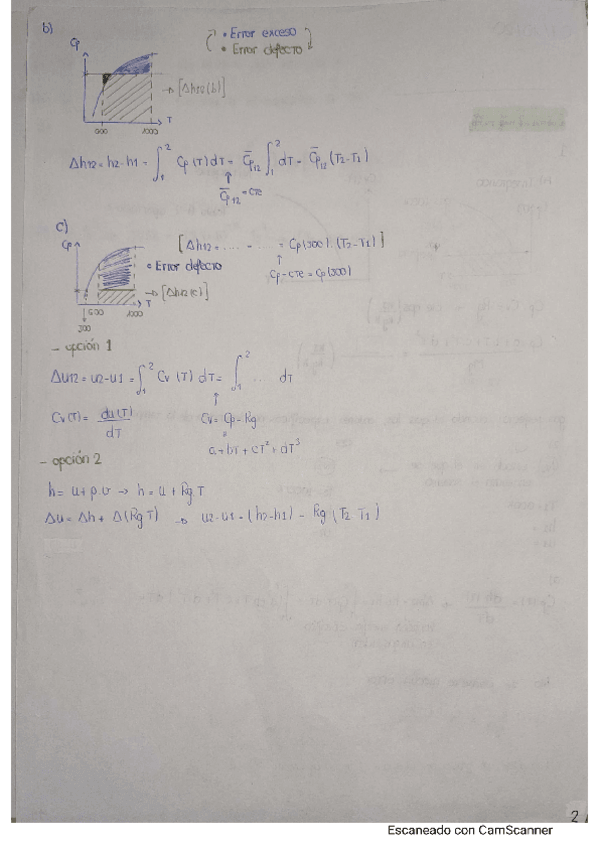 b)
• Error exceso
• Error defecto
Cp
→ [Δh12(b)]
500 1000 T
Δh12 = h2-h1 = ∫₁² Cp(T) dT = C̄p12 ∫₁² dT = C̄p12 (T2-T1)
C̄p12 = cte
c)
Cp
[Δh12 = ... - ... = Cp(300) · (T2-T1)]
• Error defecto
Cp = cte = Cp(300)
→ [Δh12(c)]
300 500 1000 T
- opción 1
Δu12 = u2-u1 = ∫₁² Cv(T) dT = ∫₁² .... dT
Cv(T) = du(T)/dT
Cv = Cp - Rg
a + bT + cT² + dT³
- opción 2
h = u + p·v → h = u + Rg T
Δu = Δh + Δ(Rg T) → u2-u1 = (h2-h1) - Rg (T2-T1)
2
Escaneado con CamScanner